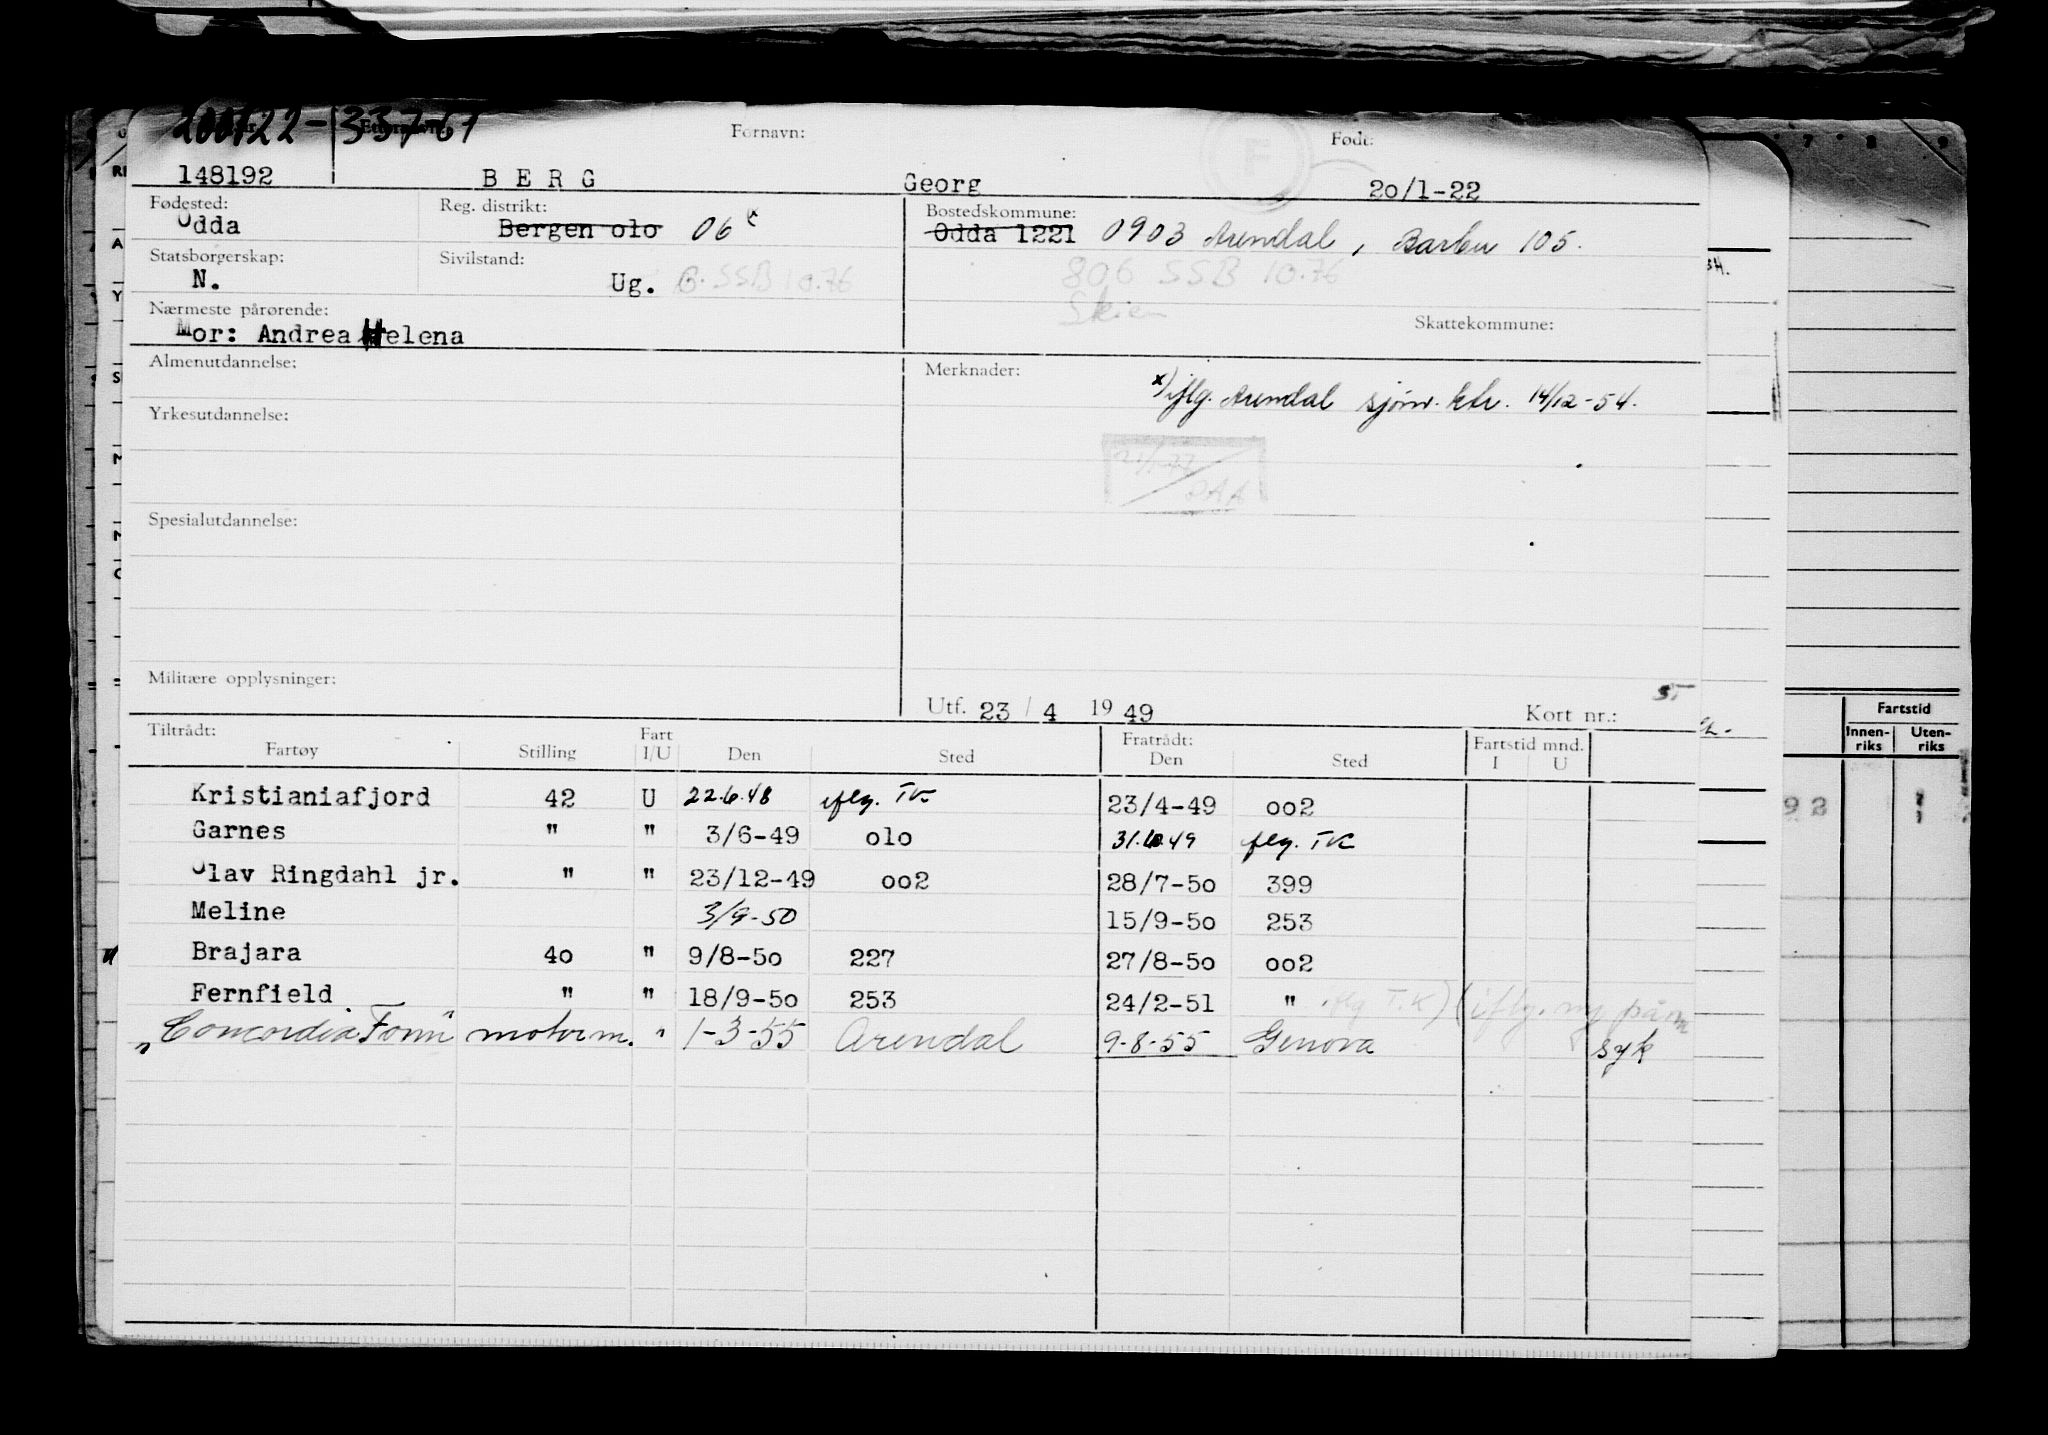 Fornavn: Født:
148192 BERG Georg 20/1-22
Fødested: Reg. distrikt: Bostedskommune:
Odda Bergen 010 06 x Odda 1221 0903 Arendal, Barbu 105.
Statsborgerskap: Sivilstand:
N. Ug. G. SSB 10.76 806 SSB 10.76
Skien
Nærmeste pårørende: Skattekommune:
Mor: Andrea Helena
Almenutdannelse: Merknader:
x) iflg. Arendal sjømv. ktr. 14/12-54.
Yrkesutdannelse:
Spesialutdannelse:
Militære opplysninger:
Utf. 23 / 4 19 49 Kort nr.:
Tiltrådt: Fratrådt:
Fartøy Stilling Fart I/U Den Sted Den Sted Fartstid mnd. I U
Kristianiafjord 42 U 22.6.48 iflg. TK 23/4-49 002
Garnes " " 3/6-49 010 iflg. TK
Olav Ringdahl jr. " " 23/12-49 002 28/7-50 399
Meline 3/9-50 15/9-50 253
Brajara 40 " 9/8-50 227 27/8-50 002
Fernfield " " 18/9-50 253 24/2-51 " iflg T.K) (iflg. ny
"Concordia Fonn" motorm. " 1-3-55 Arendal 9-8-55 Genova syk
Fartstid
Innen-riks Uten-riks
92